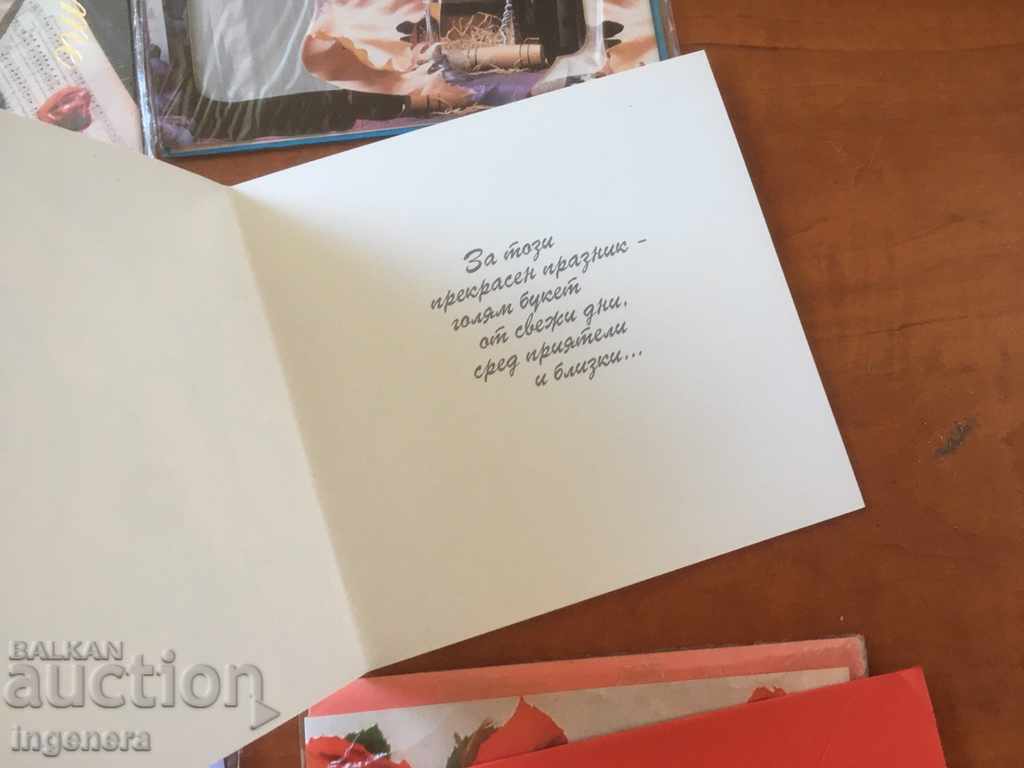 За този
прекрасен празник –
голям букет
от свежи дни,
сред приятели
и близки...
BALKAN
auction
ingenera